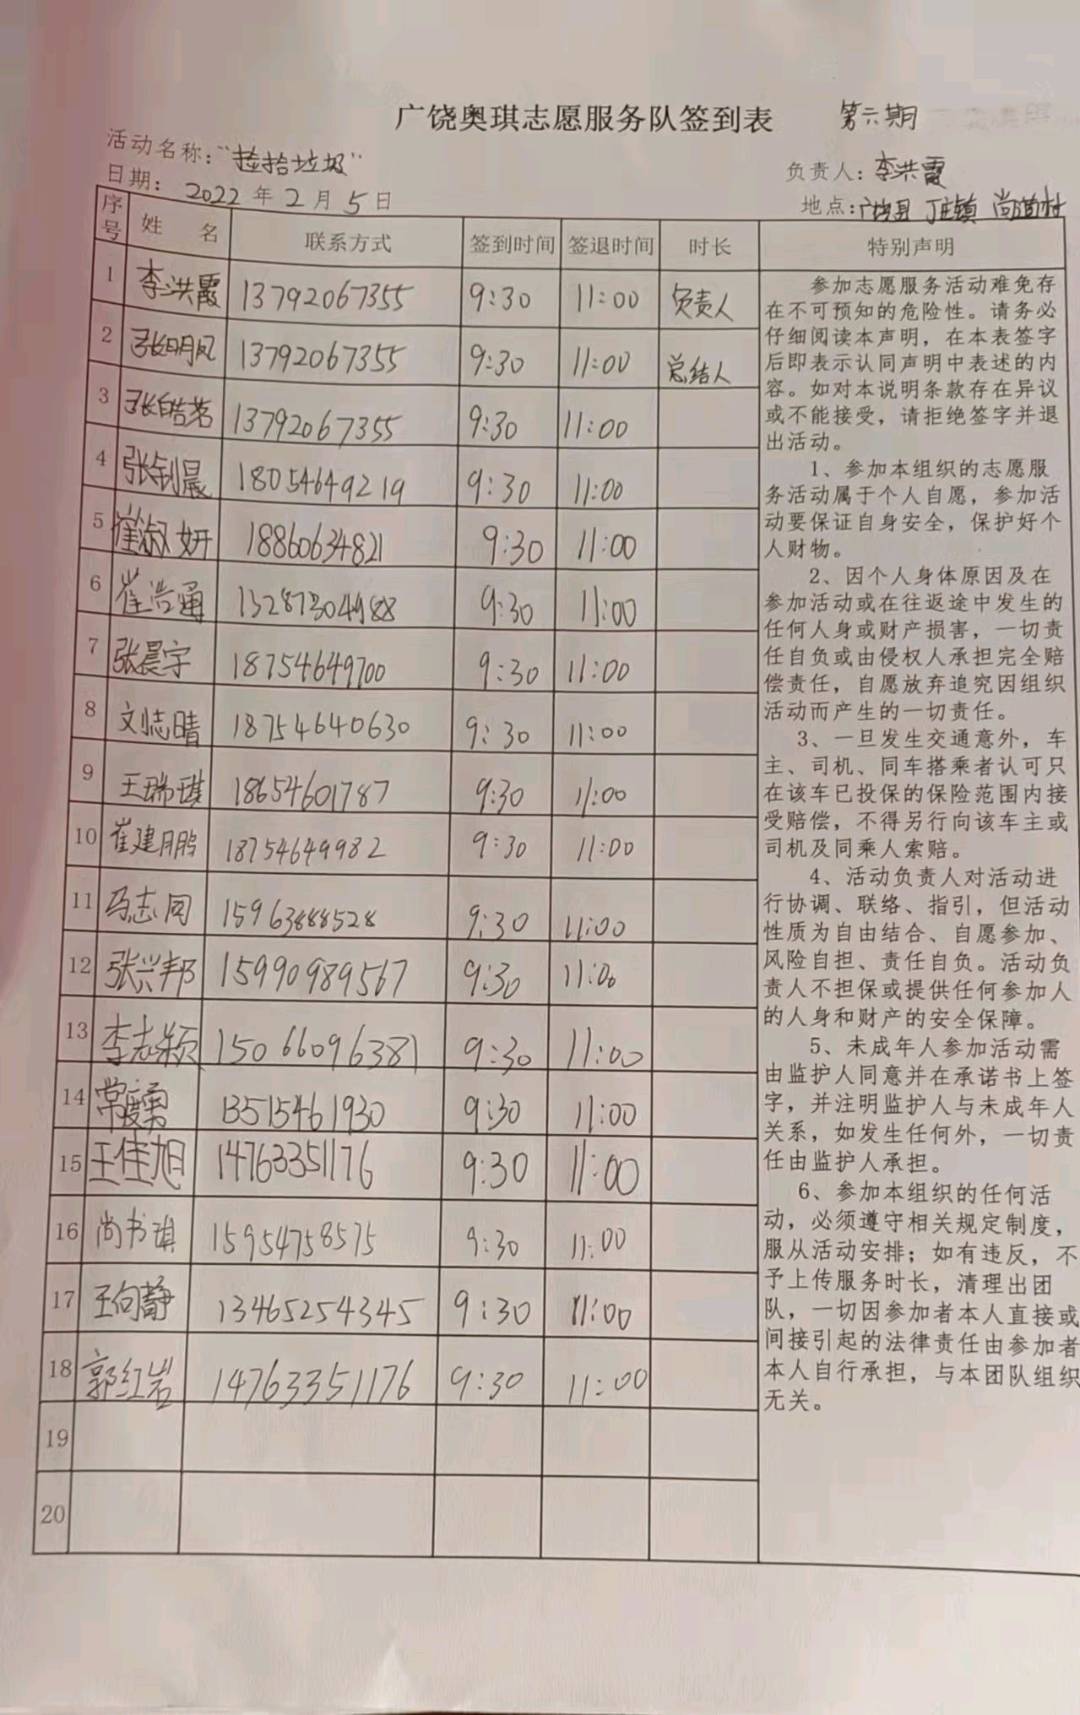 广饶奥琪志愿服务队签到表 第六期
活动名称:"捡拾垃圾" 负责人:李洪霞
日期: 2022年2月5日 地点:广饶县 丁庄镇 尚道村
序号 姓名 联系方式 签到时间 签退时间 时长 特别声明
1 李洪霞 13792067355 9:30 11:00 负责人
2 张明凤 13792067355 9:30 11:00 总结人
3 张皓茗 13792067355 9:30 11:00
4 张钊晨 18054649219 9:30 11:00
5 崔淑妍 18860634821 9:30 11:00
6 崔浩通 13287304988 9:30 11:00
7 张晨宇 18754649700 9:30 11:00
8 刘志晴 18754640630 9:30 11:00
9 王瑞琪 18654601787 9:30 11:00
10 崔建鹏 18754649982 9:30 11:00
11 冯志同 15963888528 9:30 11:00
12 张兴邦 15990989567 9:30 11:00
13 李志颖 15066096381 9:30 11:00
14 13515461930 9:30 11:00
15 王佳旭 14763351176 9:30 11:00
16 尚书琪 15954758575 9:30 11:00
17 王向静 13465254345 9:30 11:00
18 郭红岩 14763351176 9:30 11:00
19
20
参加志愿服务活动难免存
在不可预知的危险性。请务必
仔细阅读本声明，在本表签字
后即表示认同声明中表述的内
容。如对本说明条款存在异议
或不能接受，请拒绝签字并退
出活动。
1、参加本组织的志愿服
务活动属于个人自愿，参加活
动要保证自身安全，保护好个
人财物。
2、因个人身体原因及在
参加活动或在往返途中发生的
任何人身或财产损害，一切责
任自负或由侵权人承担完全赔
偿责任，自愿放弃追究因组织
活动而产生的一切责任。
3、一旦发生交通意外，车
主、司机、同车搭乘者认可只
在该车已投保的保险范围内接
受赔偿，不得另行向该车主或
司机及同乘人索赔。
4、活动负责人对活动进
行协调、联络、指引，但活动
性质为自由结合、自愿参加、
风险自担、责任自负。活动负
责人不担保或提供任何参加人
的人身和财产的安全保障。
5、未成年人参加活动需
由监护人同意并在承诺书上签
字，并注明监护人与未成年人
关系，如发生任何外，一切责
任由监护人承担。
6、参加本组织的任何活
动，必须遵守相关规定制度，
服从活动安排；如有违反，不
予上传服务时长，清理出团
队，一切因参加者本人直接或
间接引起的法律责任由参加者
本人自行承担，与本团队组织
无关。